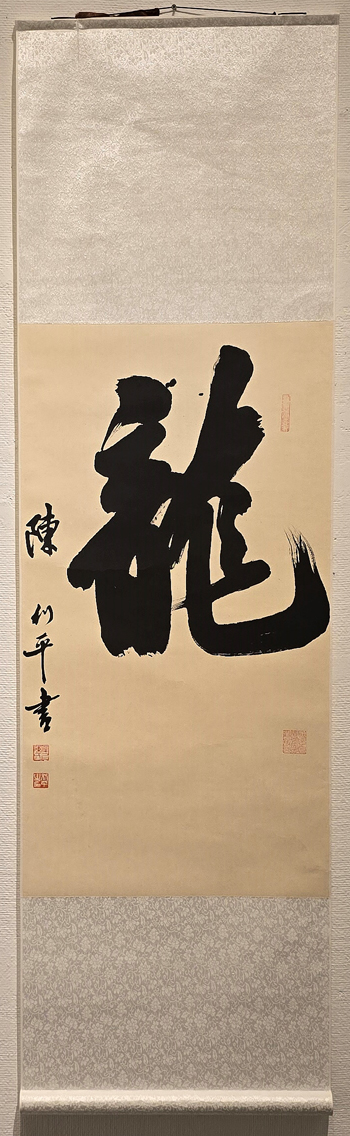 龍
陳利平書